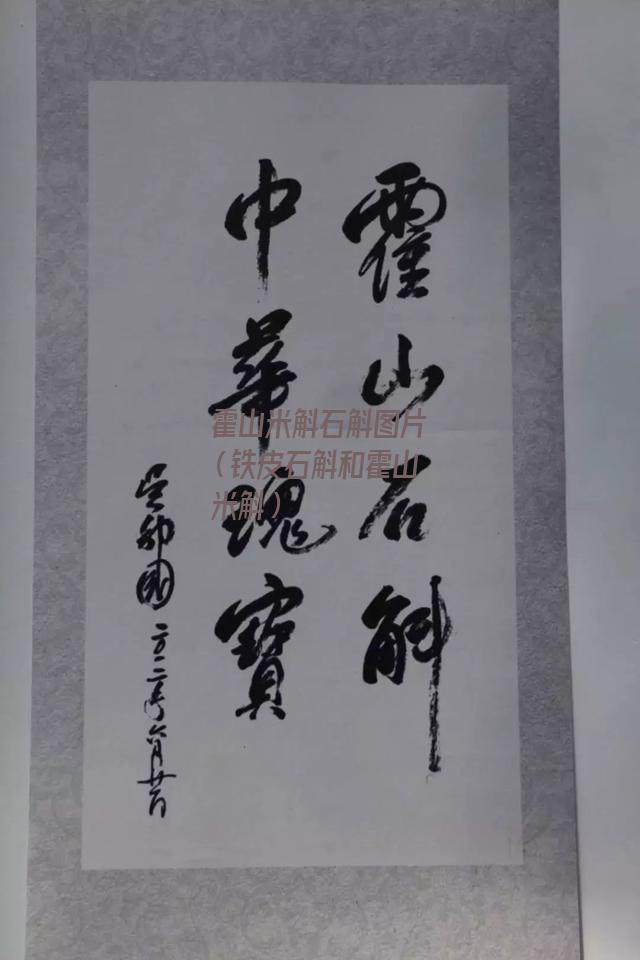 霍山石斛
中華瑰寶
吴邦國
二〇一二年六月廿
霍山米斛石斛图片
（铁皮石斛和霍山
米斛）